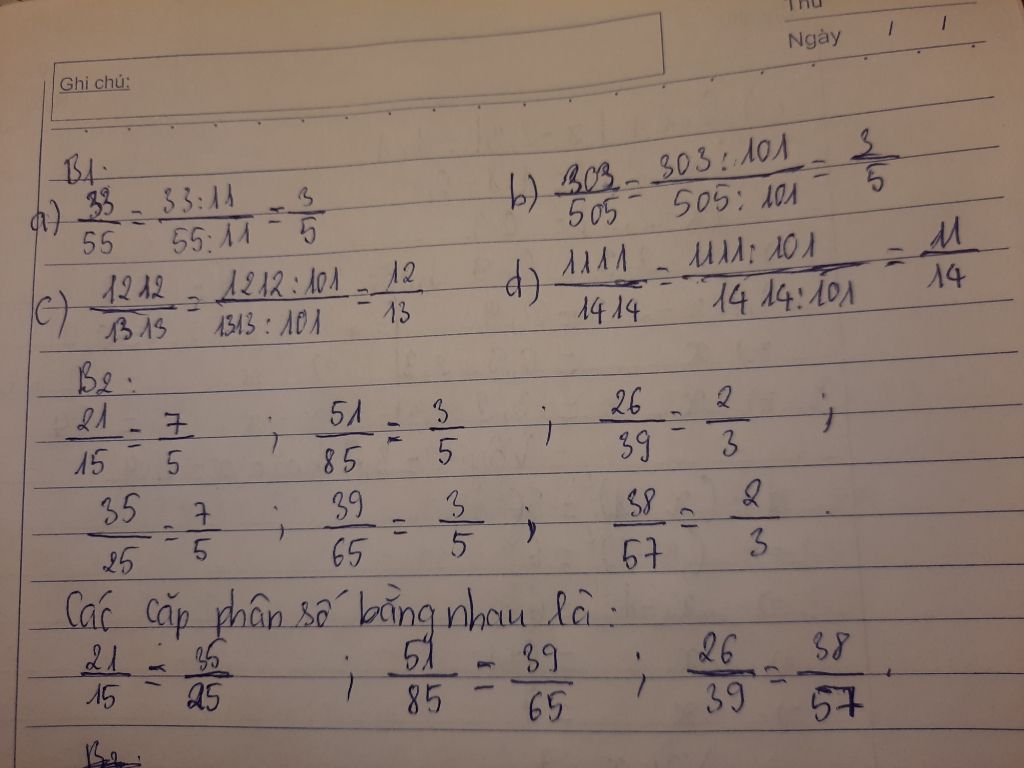 Thứ
Ngày / /
Ghi chú:
B1:
a) 33/55 = 33:11/55:11 = 3/5 b) 303/505 = 303:101/505:101 = 3/5
c) 1212/1313 = 1212:101/1313:101 = 12/13 d) 1111/1414 = 1111:101/1414:101 = 11/14
B2:
21/15 = 7/5 ; 51/85 = 3/5 ; 26/39 = 2/3 ;
35/25 = 7/5 ; 39/65 = 3/5 ; 38/57 = 2/3 .
Các cặp phân số bằng nhau là:
21/15 = 35/25 ; 51/85 = 39/65 ; 26/39 = 38/57 .